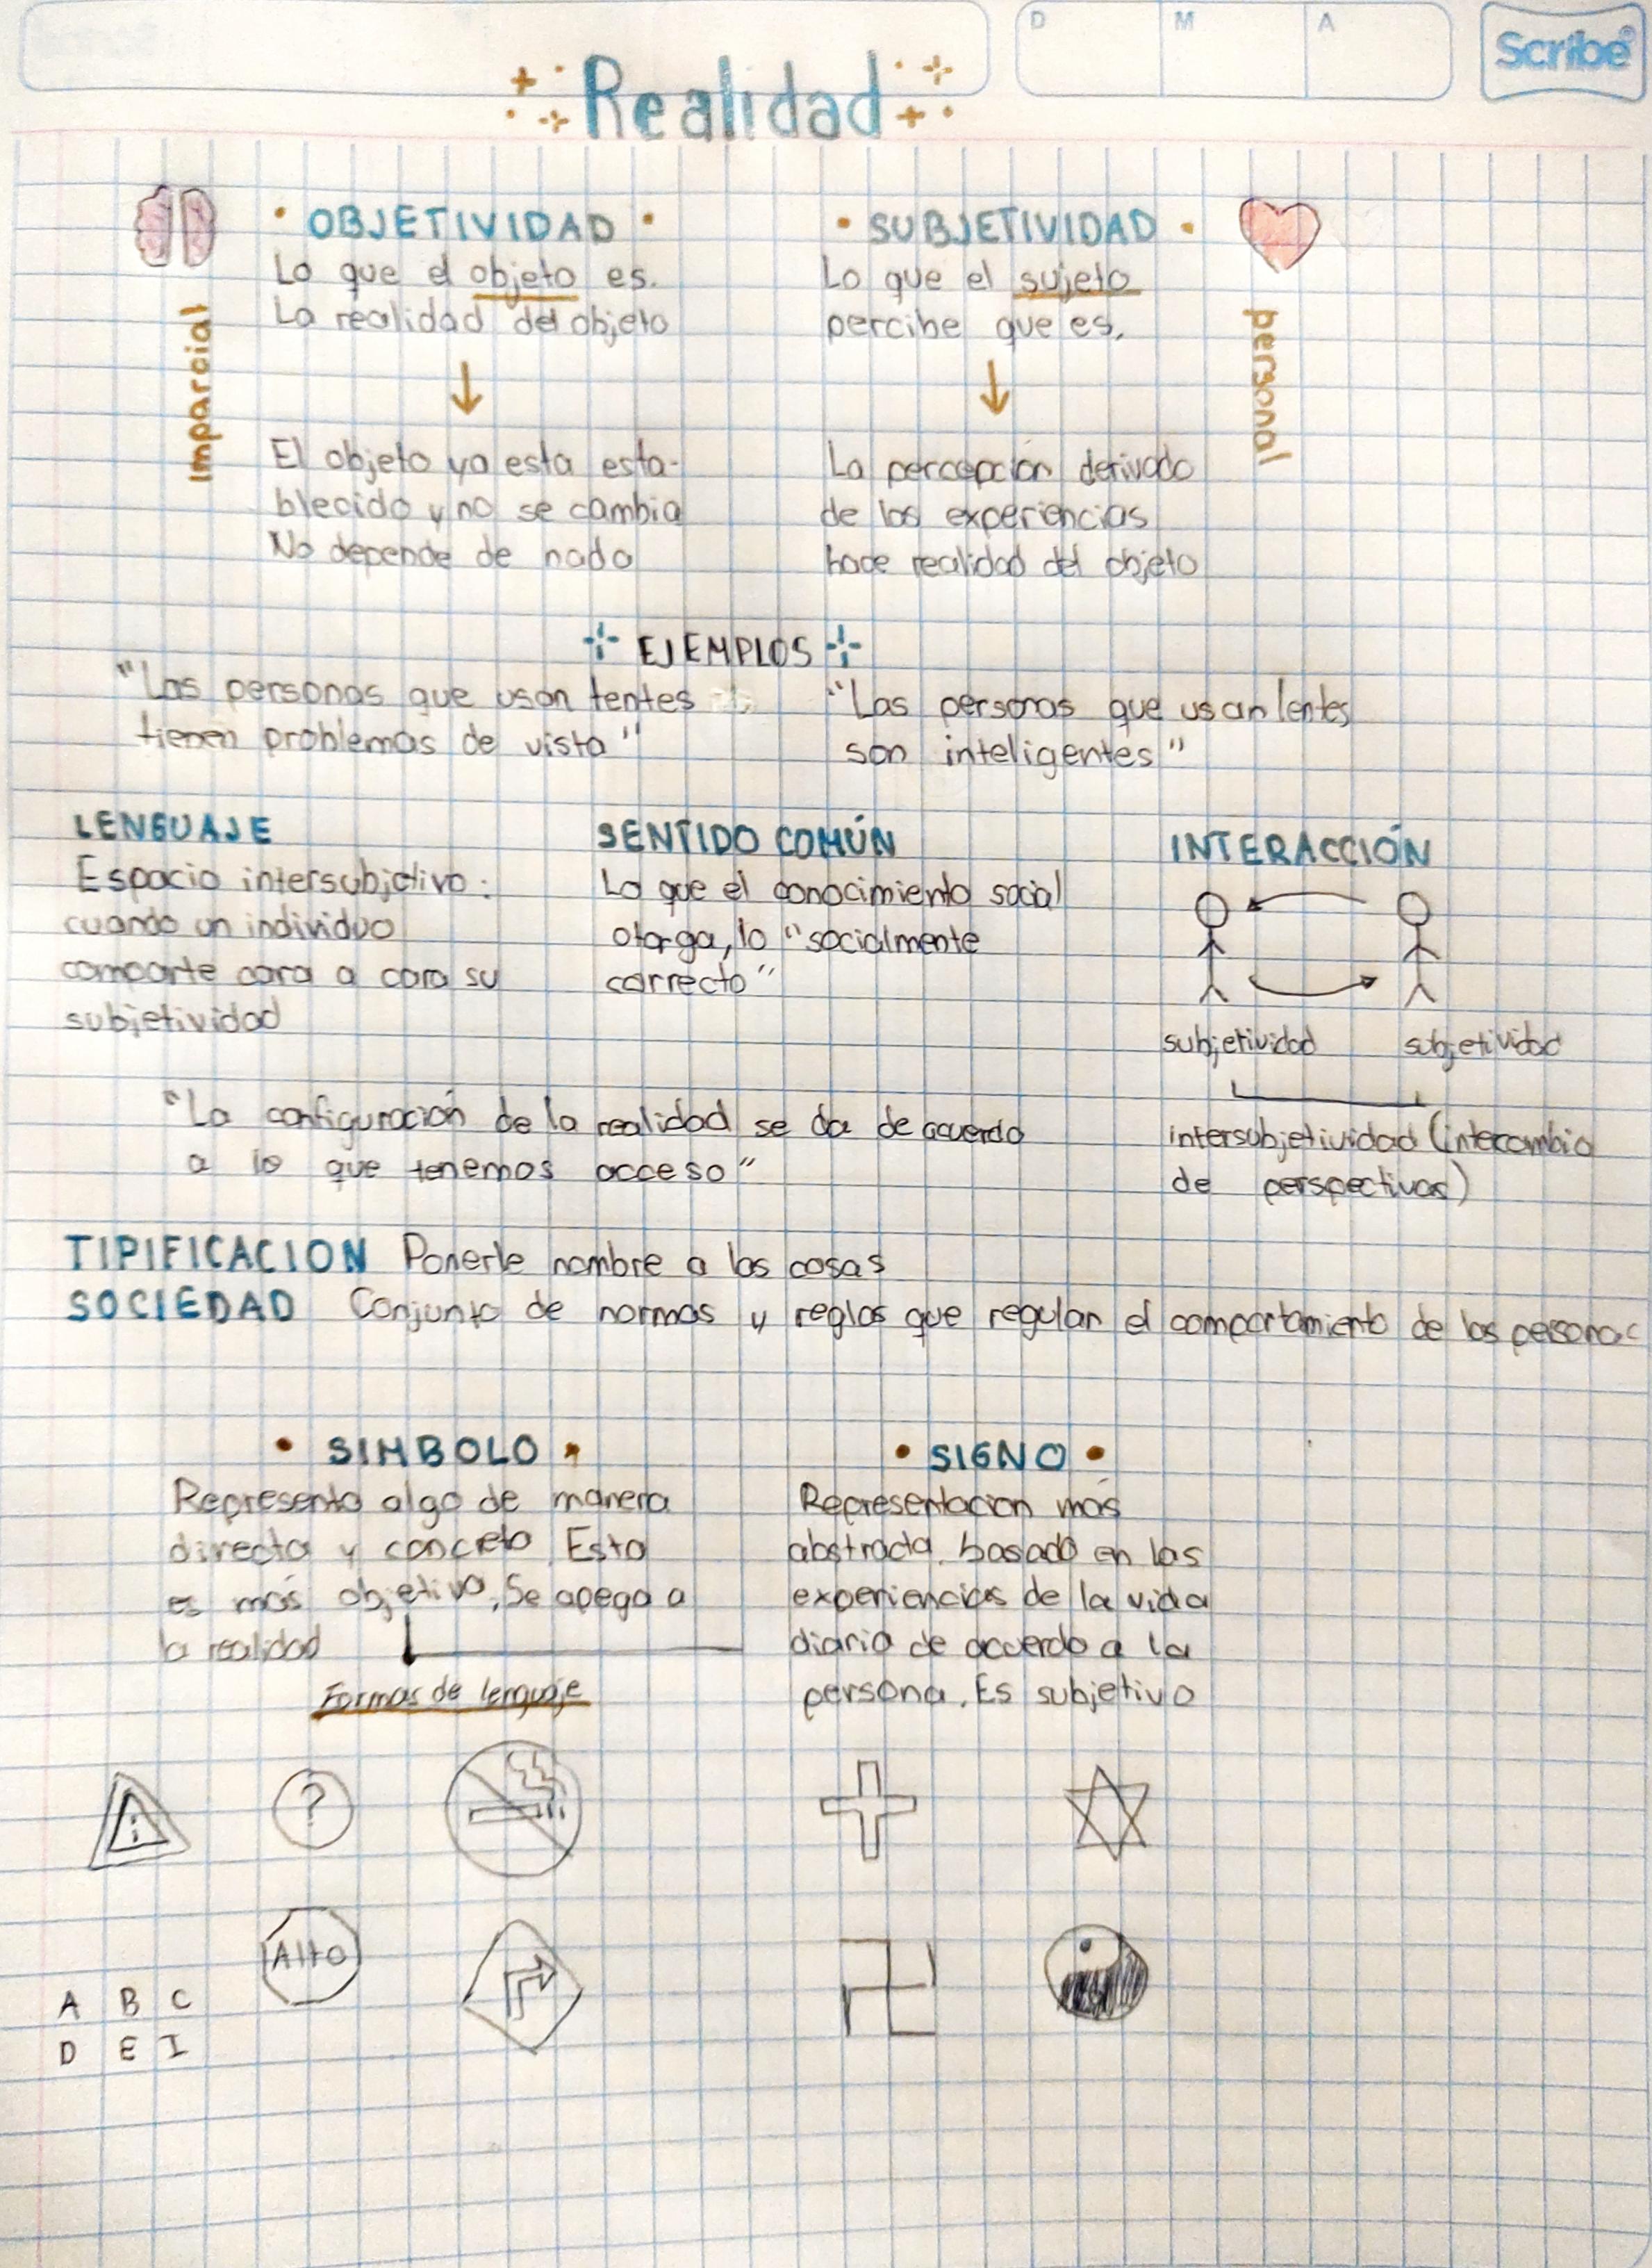 D M A
Scribe
Realidad
• OBJETIVIDAD •
Lo que el objeto es.
La realidad del objeto
Imparcial
El objeto ya esta esta-
blecido y no se cambia
No depende de nada
• SUBJETIVIDAD •
Lo que el sujeto
percibe que es.
personal
La percepción derivado
de las experiencias
hace realidad del objeto
EJEMPLOS
"Las personas que usan lentes
tienen problemas de vista"
"Las personas que usan lentes
son inteligentes"
LENGUAJE
Espacio intersubjetivo:
cuando un individuo
comparte cara a cara su
subjetividad
SENTIDO COMÚN
Lo que el conocimiento social
otorga, lo "socialmente
correcto"
INTERACCIÓN
subjetividad subjetividad
intersubjetividad (intercambio
de perspectivas)
"La configuración de la realidad se da de acuerdo
a lo que tenemos acceso"
TIPIFICACION Ponerle nombre a las cosas
SOCIEDAD Conjunto de normas y reglas que regular el comportamiento de las personas
• SIMBOLO •
Representa algo de manera
directa y concreta. Esta
es más objetiva, Se apega a
la realidad
Formas de lenguaje
• SIGNO •
Representacion más
abstracta. basado en las
experiencias de la vida
diaria de acuerdo a la
persona. Es subjetivo
¡
?
Alto
A B C
D E I